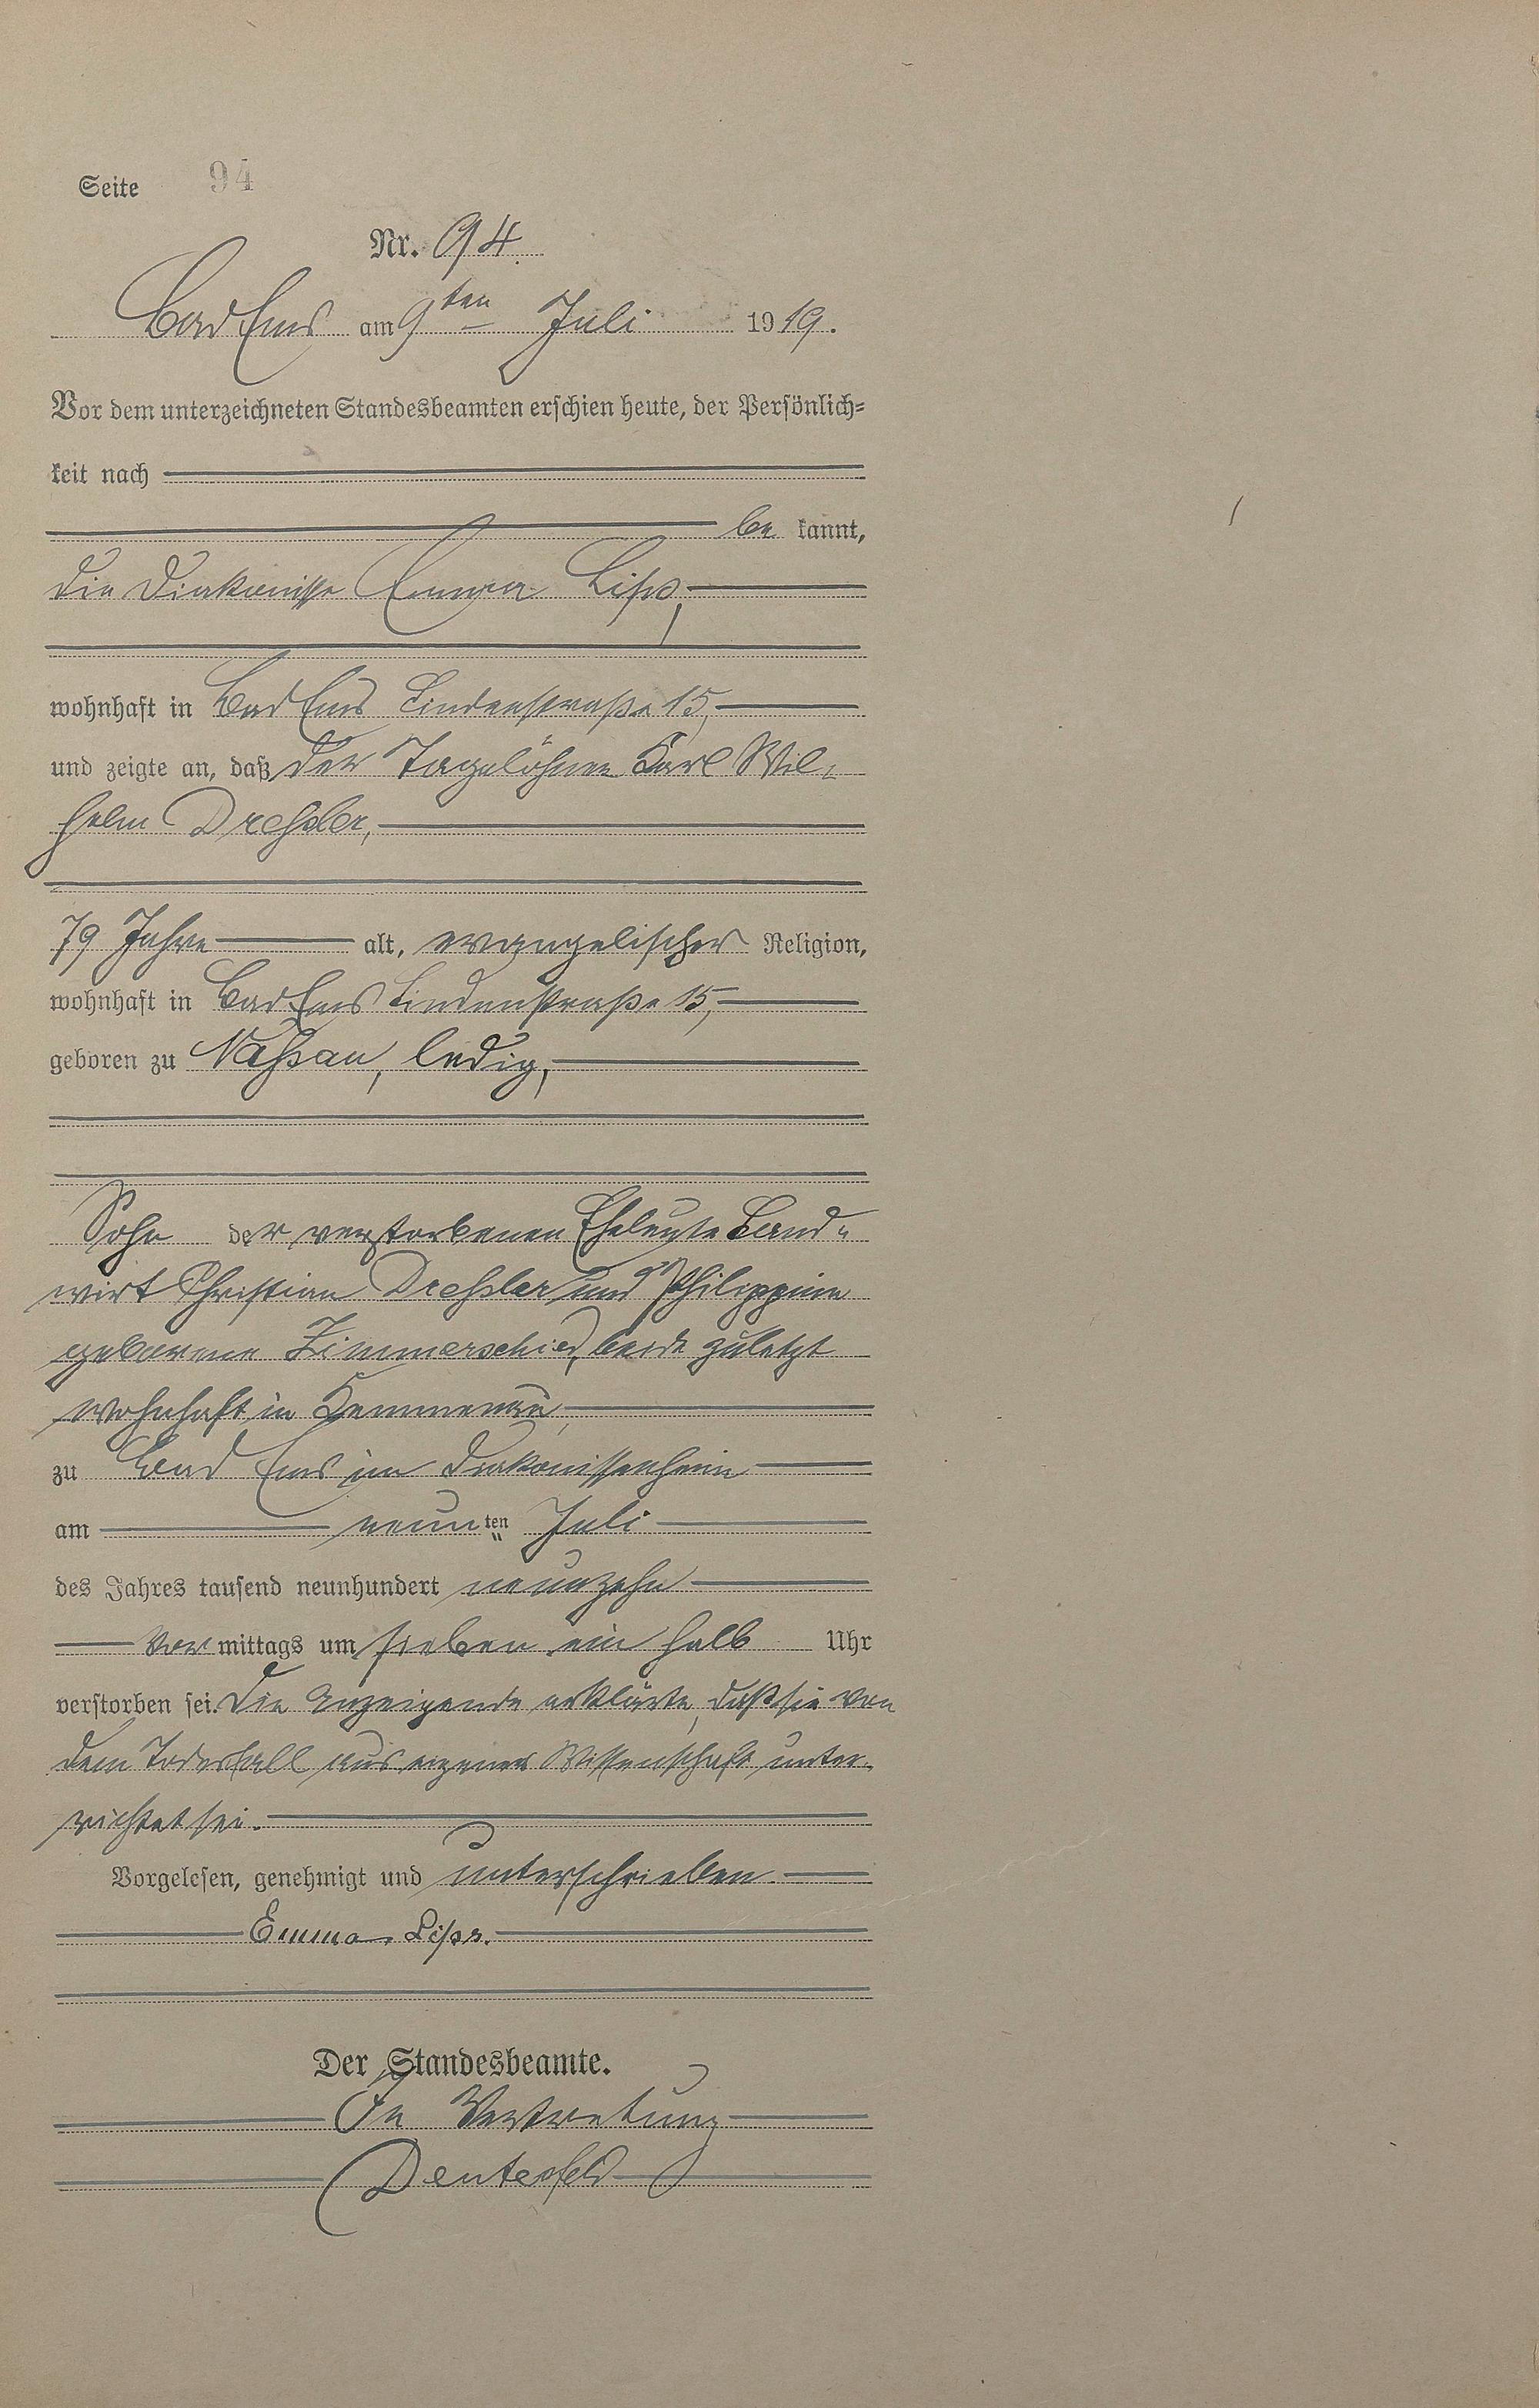 Seite 94
Nr. 94.
Bad Ems am 9ten Juli 1919.
Vor dem unterzeichneten Standesbeamten erschien heute, der Persönlich=
keit nach
be kannt,
die Diakonisse Emma Lips,
wohnhaft in Bad Ems Lindenstraße 15,
und zeigte an, daß der Tagelöhner Karl Wil-
helm Dreßler,
79 Jahre alt, evangelischer Religion,
wohnhaft in Bad Ems Lindenstraße 15,
geboren zu Naßau, ledig,
Sohn der verstorbenen Eheleute Land-
wirt Christian Dreßler und Philippine
geborene Zimmerschied, beide zuletzt
wohnhaft in Kemmenau,
zu Bad Ems im Diakonissenheim
am neun ten Juli
des Jahres tausend neunhundert neunzehn
Vor mittags um sieben ein halb Uhr
verstorben sei. Die Anzeigende erklärte, daß sie von
dem Todesfall aus eigener Wissenschaft unter-
richtet sei.
Vorgelesen, genehmigt und unterschrieben.
Emma Lips.
Der Standesbeamte.
In Vertretung